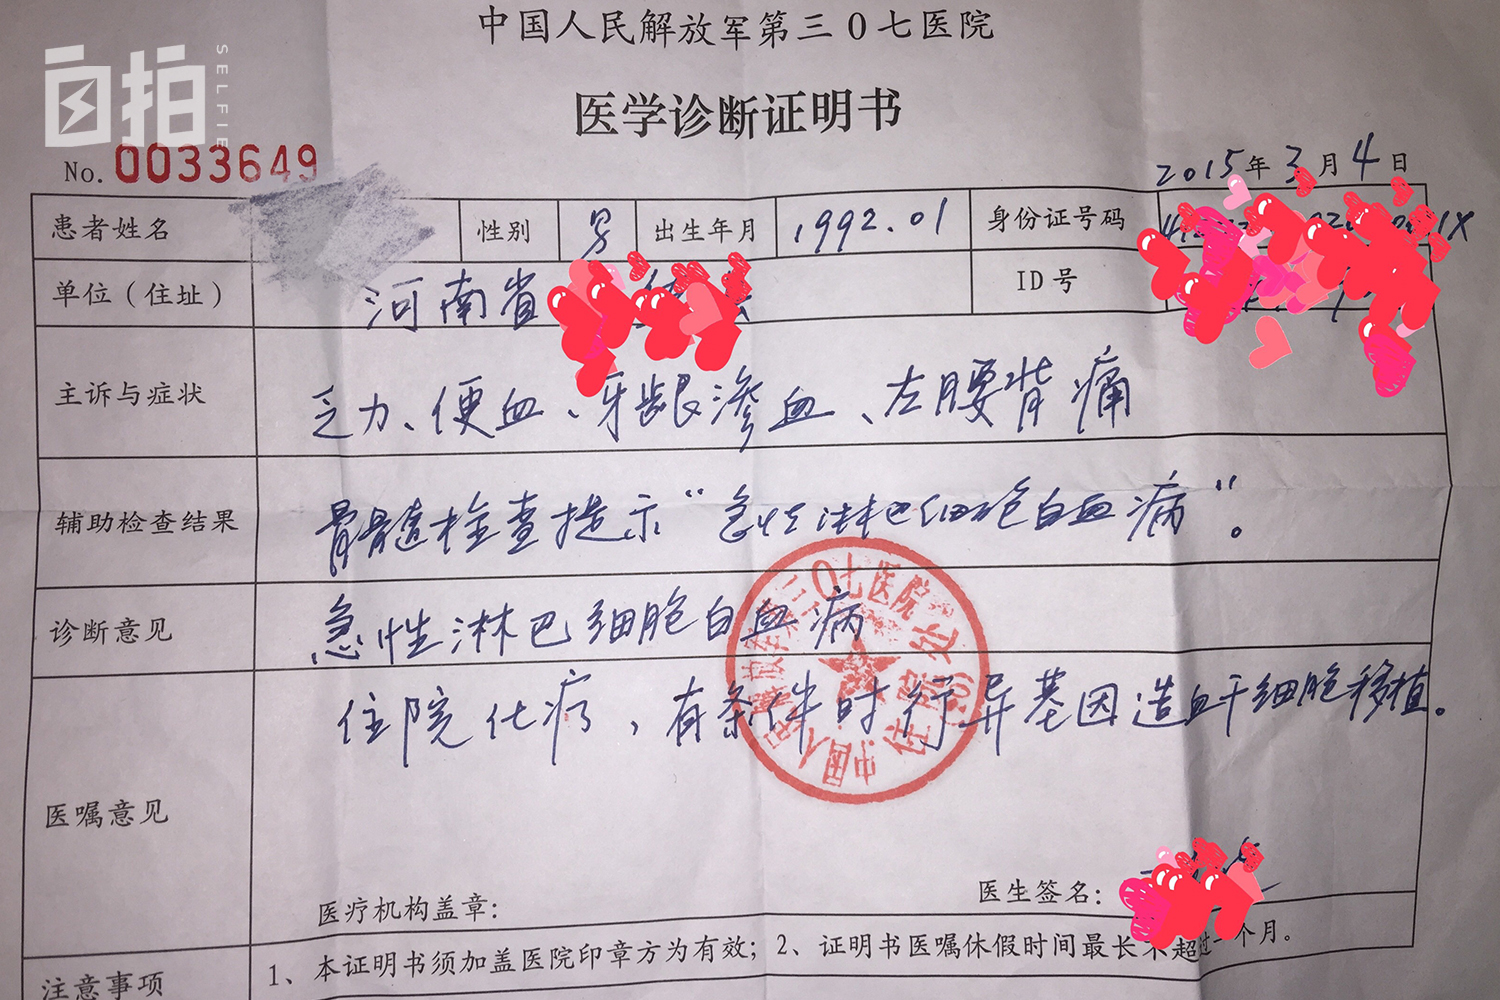 中国人民解放军第三0七医院
自拍
SELFIE
医学诊断证明书
No. 0033649
2015年3月4日
患者姓名 性别 男 出生年月 1992.01 身份证号码
单位（住址） 河南省 ID号
主诉与症状 乏力、便血、牙龈渗血、左腰背痛
辅助检查结果 骨髓检查提示“急性淋巴细胞白血病”。
诊断意见 急性淋巴细胞白血病
住院化疗，有条件时行异基因造血干细胞移植。
医嘱意见
医疗机构盖章： 医生签名：
注意事项 1、本证明书须加盖医院印章方为有效；2、证明书医嘱休假时间最长不超过一个月。
中国人民解放军第三0七医院
住院处